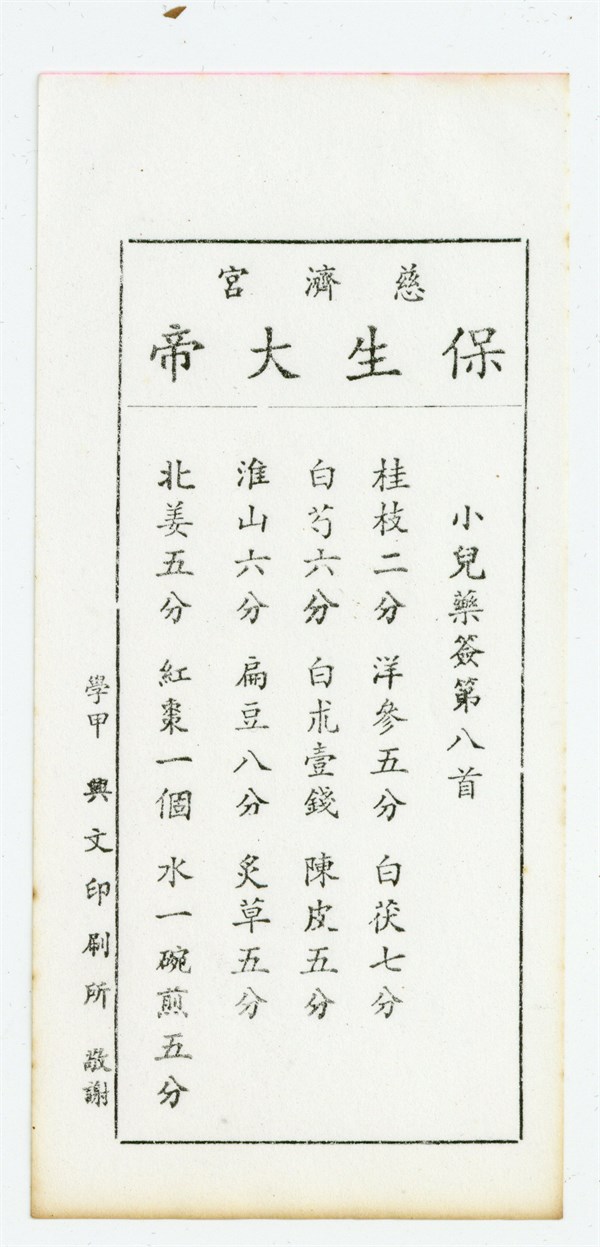 慈濟宮
保生大帝
小兒藥簽第八首
桂枝二分 洋參五分 白茯七分
白芍六分 白朮壹錢 陳皮五分
淮山六分 扁豆八分 炙草五分
北姜五分 紅棗一個 水一碗煎五分
學甲 興文印刷所 敬謝